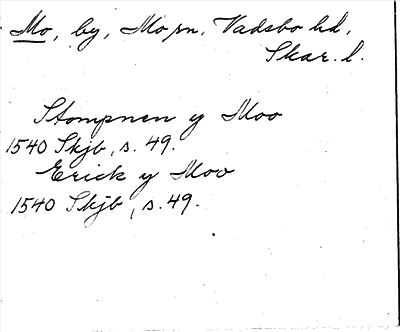 Mo, by, Mo sn, Vadsbo hd,
Skar. l.
Stompnen y Moo
1540 Skjb, s. 49.
Erick y Moo
1540 Skjb, s. 49.